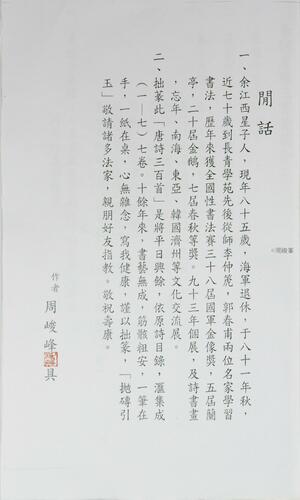 閒話
一、余江西星子人，現年八十五歲，海軍退休，于八十一年秋，
近七十歲到長青學苑先後從師李仲篪，郭春甫兩位名家學習
書法，歷年來獲全國性書法賽三十八屆國軍金像獎，五屆蘭
亭，二十屆金鵝，七屆春秋等獎。九十三年個展，及詩書畫
，忘年、南海、東亞、韓國濟州等文化交流展。
二、拙篆此「唐詩三百首」是將平日興餘，依原詩目錄，滙集成
（一—七）七卷。十餘年來，書藝無成，筋骸粗安，一筆在
手，一紙在桌，心無雜念，寫我健康，謹以拙篆，「拋磚引
玉」敬請諸多法家，親朋好友指教。敬祝壽康。
作者 周峻峰 具